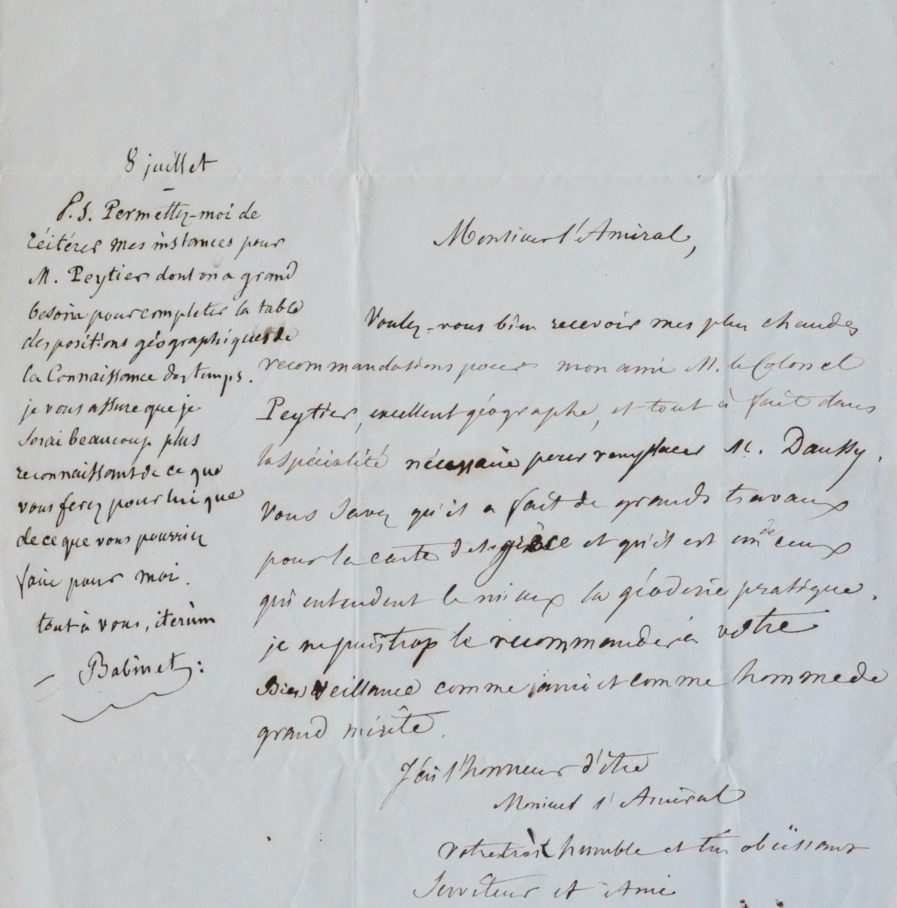 8 juillet
P.S. Permettez-moi de
réitérer mes instances pour
M. Peytier dont on a grand
besoin pour completer la table
des positions géographiques de
la Connaissance des temps.
je vous assure que je
serai beaucoup plus
reconnaissant de ce que
vous ferez pour lui que
de ce que vous pourriez
faire pour moi.
tout à vous, iterùm
Babinet
Monsieur l'Amiral,
Voulez-vous bien recevoir mes plus chaudes
recommandations pour mon ami M. le Colonel
Peytier, excellent géographe, et tout à fait dans
la spécialité nécessaire pour remplacer M. Daussy.
Vous savez qu'il a fait de grands travaux
pour la carte de la grèce et qu'il est un de ceux
qui entendent le mieux la géodesie pratique.
je ne puis trop le recommander à votre
Bienveillance comme ami et comme homme de
grand mérite.
J'ai l'honneur d'être
Monsieur l'Amiral
votre très humble et très obéissant
Serviteur et Ami